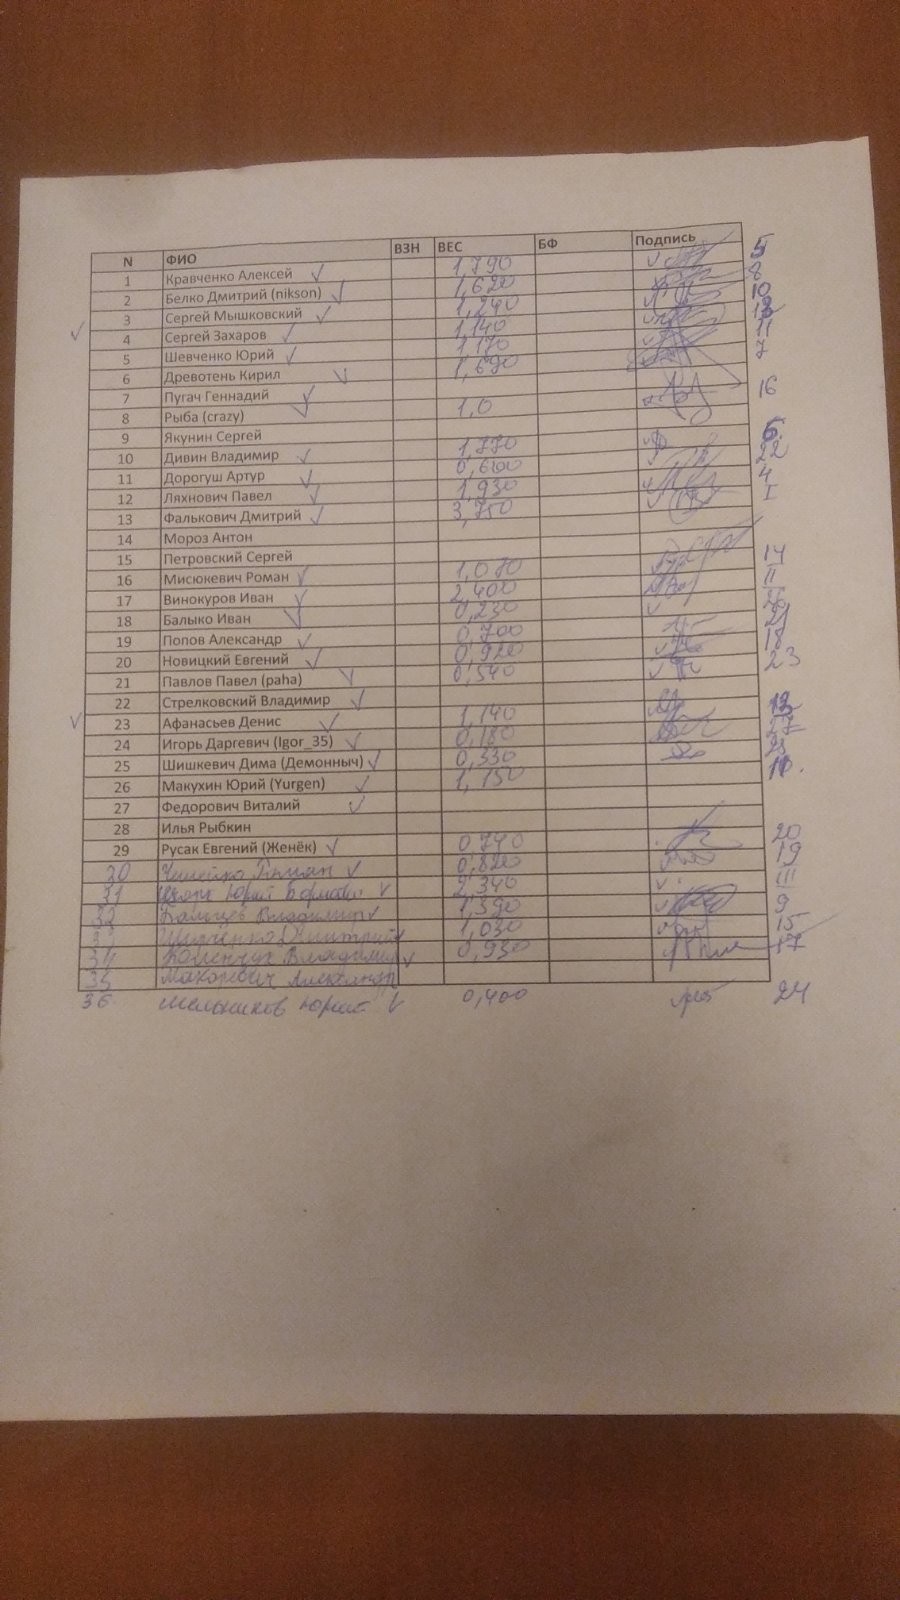 N ФИО ВЗН ВЕС БФ Подпись
1 Кравченко Алексей 1,790 5
2 Белко Дмитрий (nikson) 1,620 8
3 Сергей Мышковский 1,240 10
4 Сергей Захаров 1,140
5 Шевченко Юрий 1,170 11
6 Древотень Кирил 1,690 7
7 Пугач Геннадий
8 Рыба (crazy) 1,0 16
9 Якунин Сергей
10 Дивин Владимир 1,770 6
11 Дорогуш Артур 0,600 22
12 Ляхнович Павел 1,930 4
13 Фалькович Дмитрий 3,750 I
14 Мороз Антон
15 Петровский Сергей
16 Мисюкевич Роман 1,080 14
17 Винокуров Иван 2,400 II
18 Балыко Иван 0,230 26
19 Попов Александр 0,700 21
20 Новицкий Евгений 0,920 18
21 Павлов Павел (paha) 0,540 23
22 Стрелковский Владимир
23 Афанасьев Денис 1,140
24 Игорь Даргевич (Igor_35) 0,180 27
25 Шишкевич Дима (Демонныч) 0,330 25
26 Макухин Юрий (Yurgen) 1,150
27 Федорович Виталий
28 Илья Рыбкин
29 Русак Евгений (Женёк) 0,740 20
30 0,820 19
31 Юрий 2,340 III
32 Владимир 1,390 9
33 Дмитрий 1,030 15
34 Владимир 0,930 17
35 Александр
36 Мельников Юрий 0,400 24